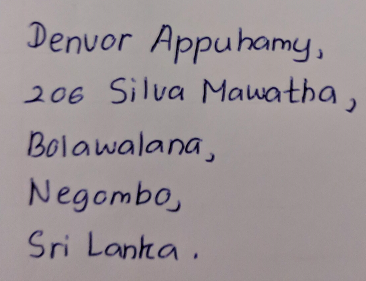 Denvor Appuhamy,
206 Silva Mawatha,
Bolawalana,
Negombo,
Sri Lanka.